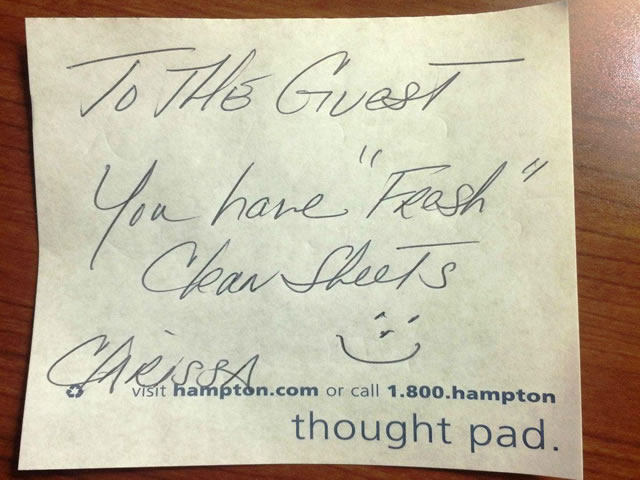 To THE Guest
You have "Fresh"
Clean Sheets
CARISSA
visit hampton.com or call 1.800.hampton
thought pad.